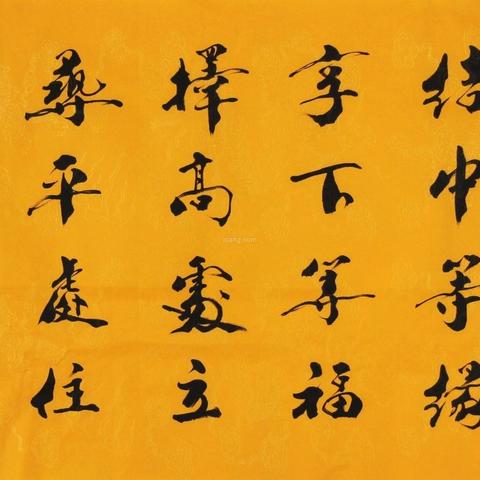 結中等緣
享下等福
擇高處立
尋平處住